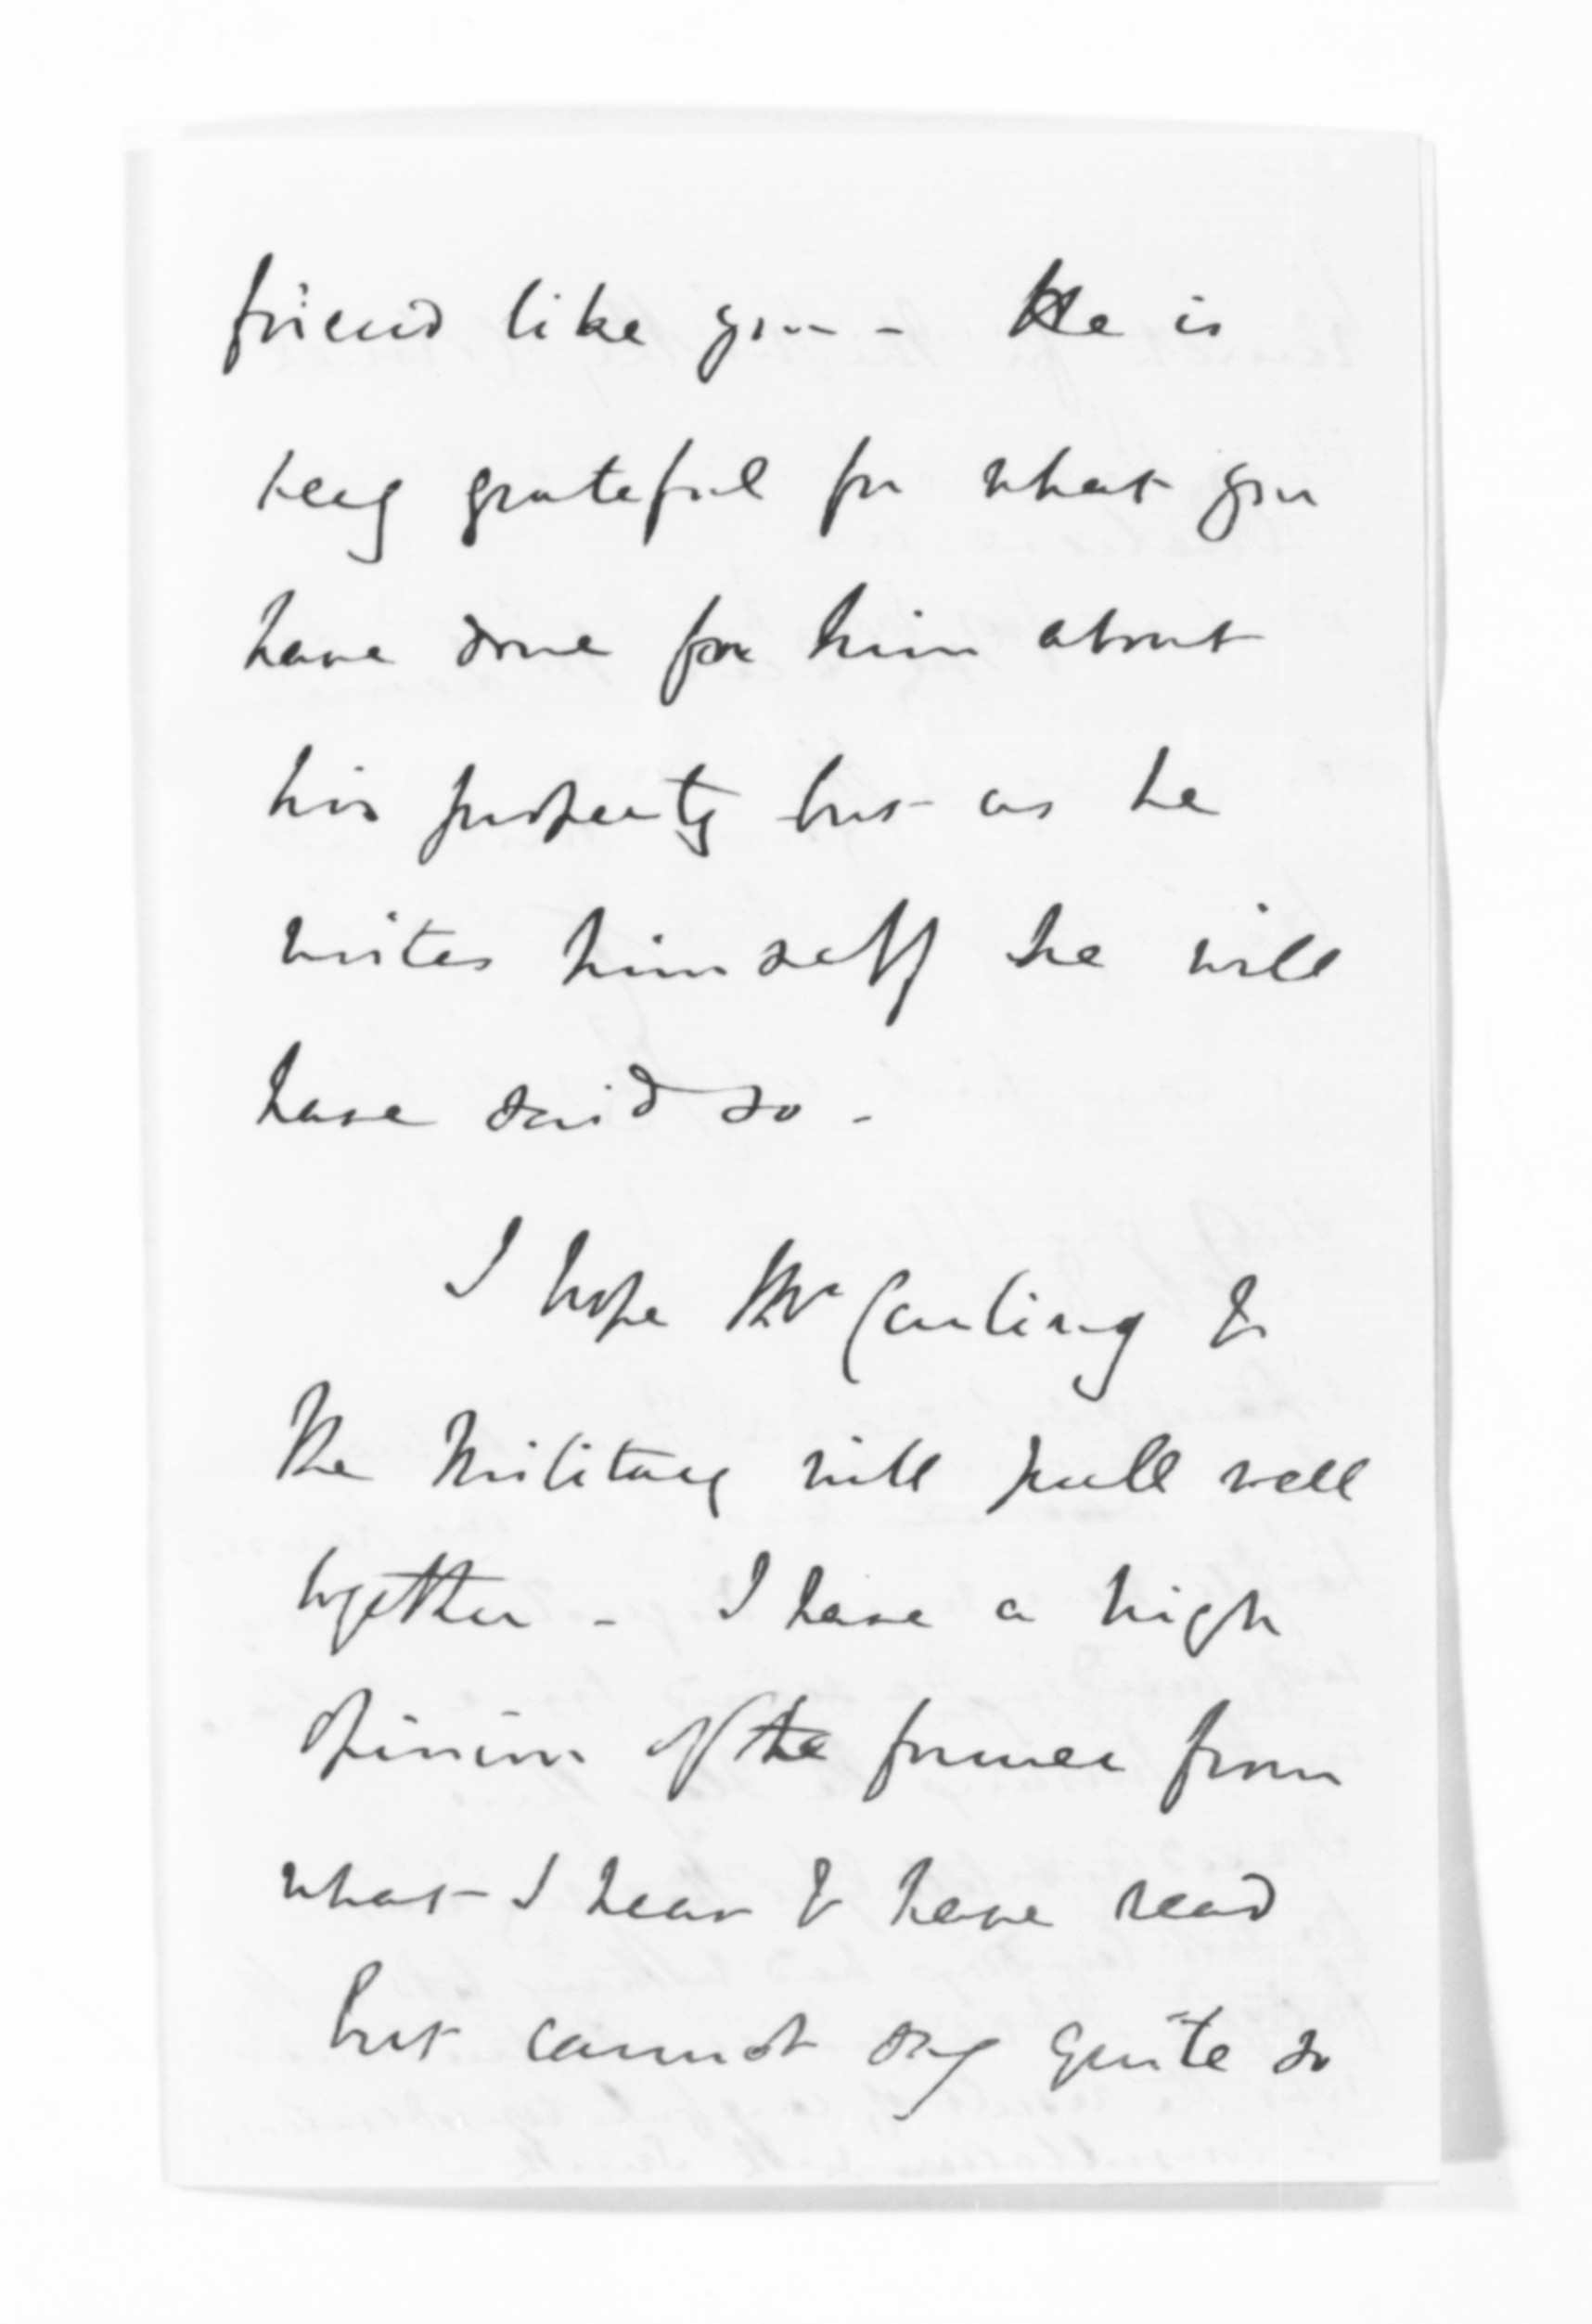 friend like you - He is
very grateful for what you
have done for him about
his property but as he
writes himself he will
have said so -
I hope Mr Carling &
the Military will pull well
together - I have a high
opinion of the former from
what I hear & have read
but cannot say quite so